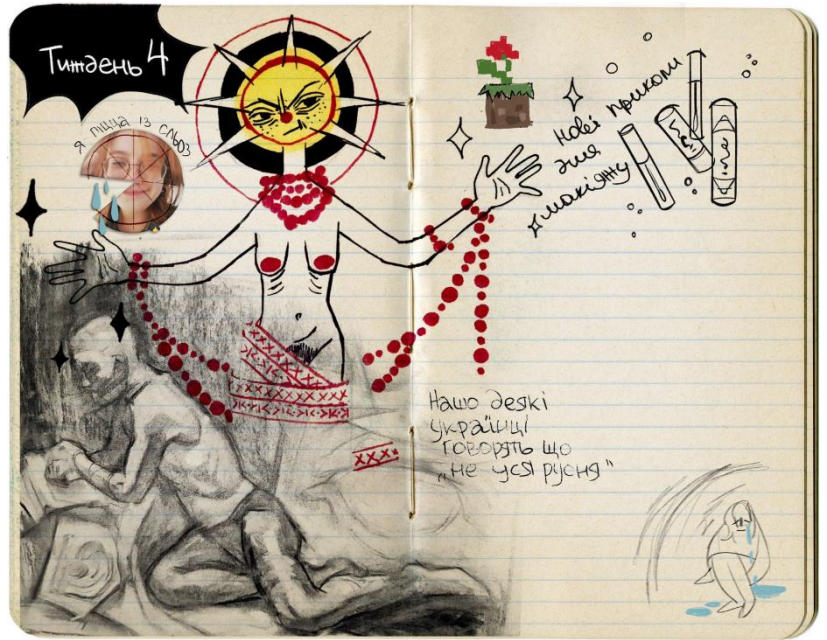 Тиждень 4
я піцца із сльоз
Нові приколи
для
макіяжу
Нашо деякі
українці
говорять що
„не уся русня"